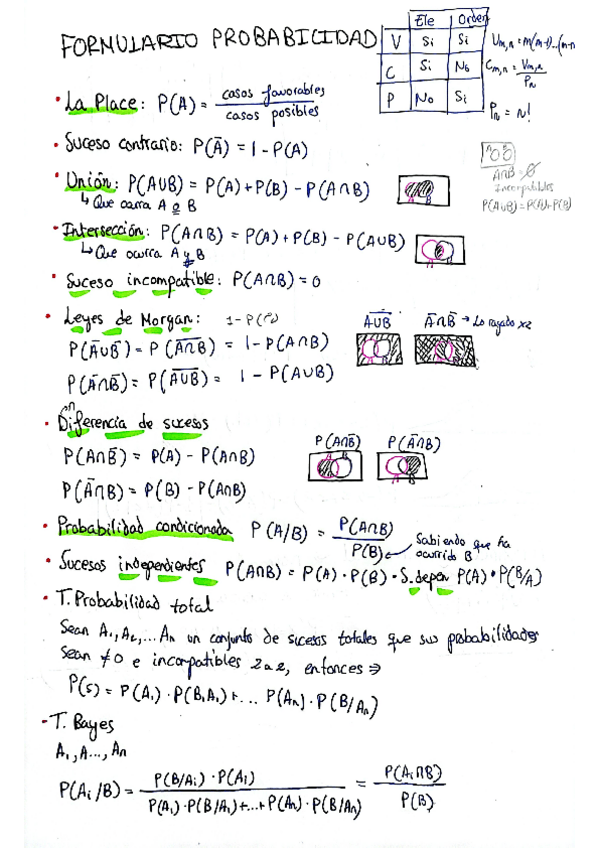 FORMULARIO PROBABILIDAD
Ele Orden
V Si Si
C Si No
P No Si
Vm,n = m(m-1)...(m-n
Cm,n = Vm,n / Pn
Pn = n!
• La Place: P(A) = casos favorables / casos posibles
• Suceso contrario: P(Ā) = 1 - P(A)
• Unión: P(A∪B) = P(A) + P(B) - P(A∩B)
↳ Que ocurra A o B
A B
A∩B = ∅
Incompatibles
P(A∪B) = P(A)+P(B)
• Intersección: P(A∩B) = P(A) + P(B) - P(A∪B)
↳ Que ocurra A y B
A B
• Suceso incompatible: P(A∩B) = 0
• Leyes de Morgan:
P(Ā∪B̅) = P(A̅∩̅B̅) = 1 - P(A∩B)
P(Ā∩B̅) = P(A̅∪̅B̅) = 1 - P(A∪B)
A̅∪̅B̅ Ā∩B̅ → Lo rayado x2
• Diferencia de sucesos
P(A∩B̅) = P(A) - P(A∩B)
P(Ā∩B) = P(B) - P(A∩B)
P(A∩B̅) P(Ā∩B)
A B A B
• Probabilidad condicionada P(A/B) = P(A∩B) / P(B)
Sabiendo que ha ocurrido B
• Sucesos independientes P(A∩B) = P(A) · P(B) • S. depen P(A) • P(B/A)
• T. Probabilidad total
Sean A₁, A₂, ... An un conjunto de sucesos totales que sus probabilidades
Sean ≠ 0 e incompatibles 2 a 2, entonces ⇒
P(s) = P(A₁) · P(B,A₁) + ... P(An) · P(B/An)
• T. Bayes
A₁, A..., An
P(Ai/B) = P(B/Ai) · P(Ai) / P(A₁) · P(B/A₁) + ... + P(An) · P(B/An) = P(Ai∩B) / P(B)